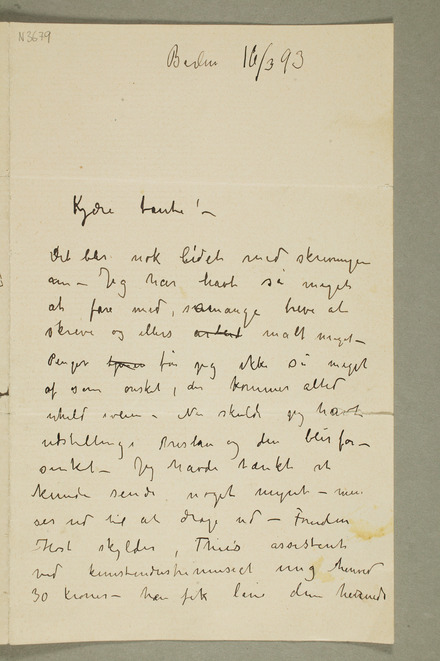 N3679
Berlin 16/3 93
Kjære tante! –
Det blir nok lidet med skrivningen
om – Jeg har havt så meget
at fare med, så mange breve at
skrive og ellers malt meget –
Penger får jeg ikke så meget
af som ønsket, der kommer altid
uheld iveien – Nu skulde jeg havt
udstilling i Breslau og den blir for-
sinket – Jeg havde tænkt at
kunde sende noget mynt – men
ser ud til at drage ud – Foruden
Høst skylder, Thiis assistent
ved kunstindustrimuseet mig henved
30 kroner – han fik låne dem hernede